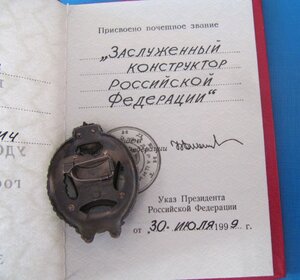 Присвоено почетное звание
„ЗАСЛУЖЕННЫЙ
КОНСТРУКТОР
РОССИЙСКОЙ
ФЕДЕРАЦИИ“
Указ Президента
Российской Федерации
от 30 - ИЮЛЯ 1999 г.